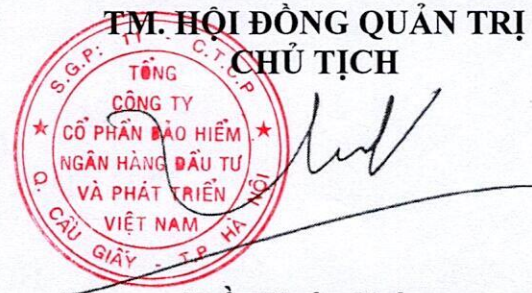 TM. HỘI ĐỒNG QUẢN TRỊ
CHỦ TỊCH
S.G.P: 11 - C.T.C.P
TỔNG
CÔNG TY
CỔ PHẦN BẢO HIỂM
NGÂN HÀNG ĐẦU TƯ
VÀ PHÁT TRIỂN
VIỆT NAM
Q. CẦU GIẤY - T.P HÀ NỘI